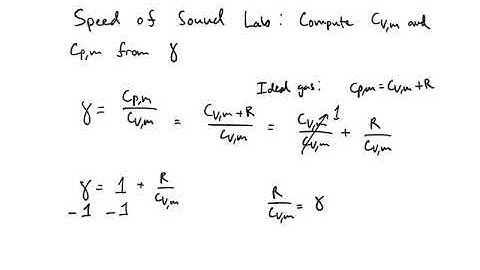 Speed of Sound Lab: Compute Cv,m and
Cp,m from γ
Ideal gas: Cp,m = Cv,m + R
γ = Cp,m / Cv,m = Cv,m + R / Cv,m = Cv,m / Cv,m 1 + R / Cv,m
γ = 1 + R / Cv,m
-1 -1
R / Cv,m = γ